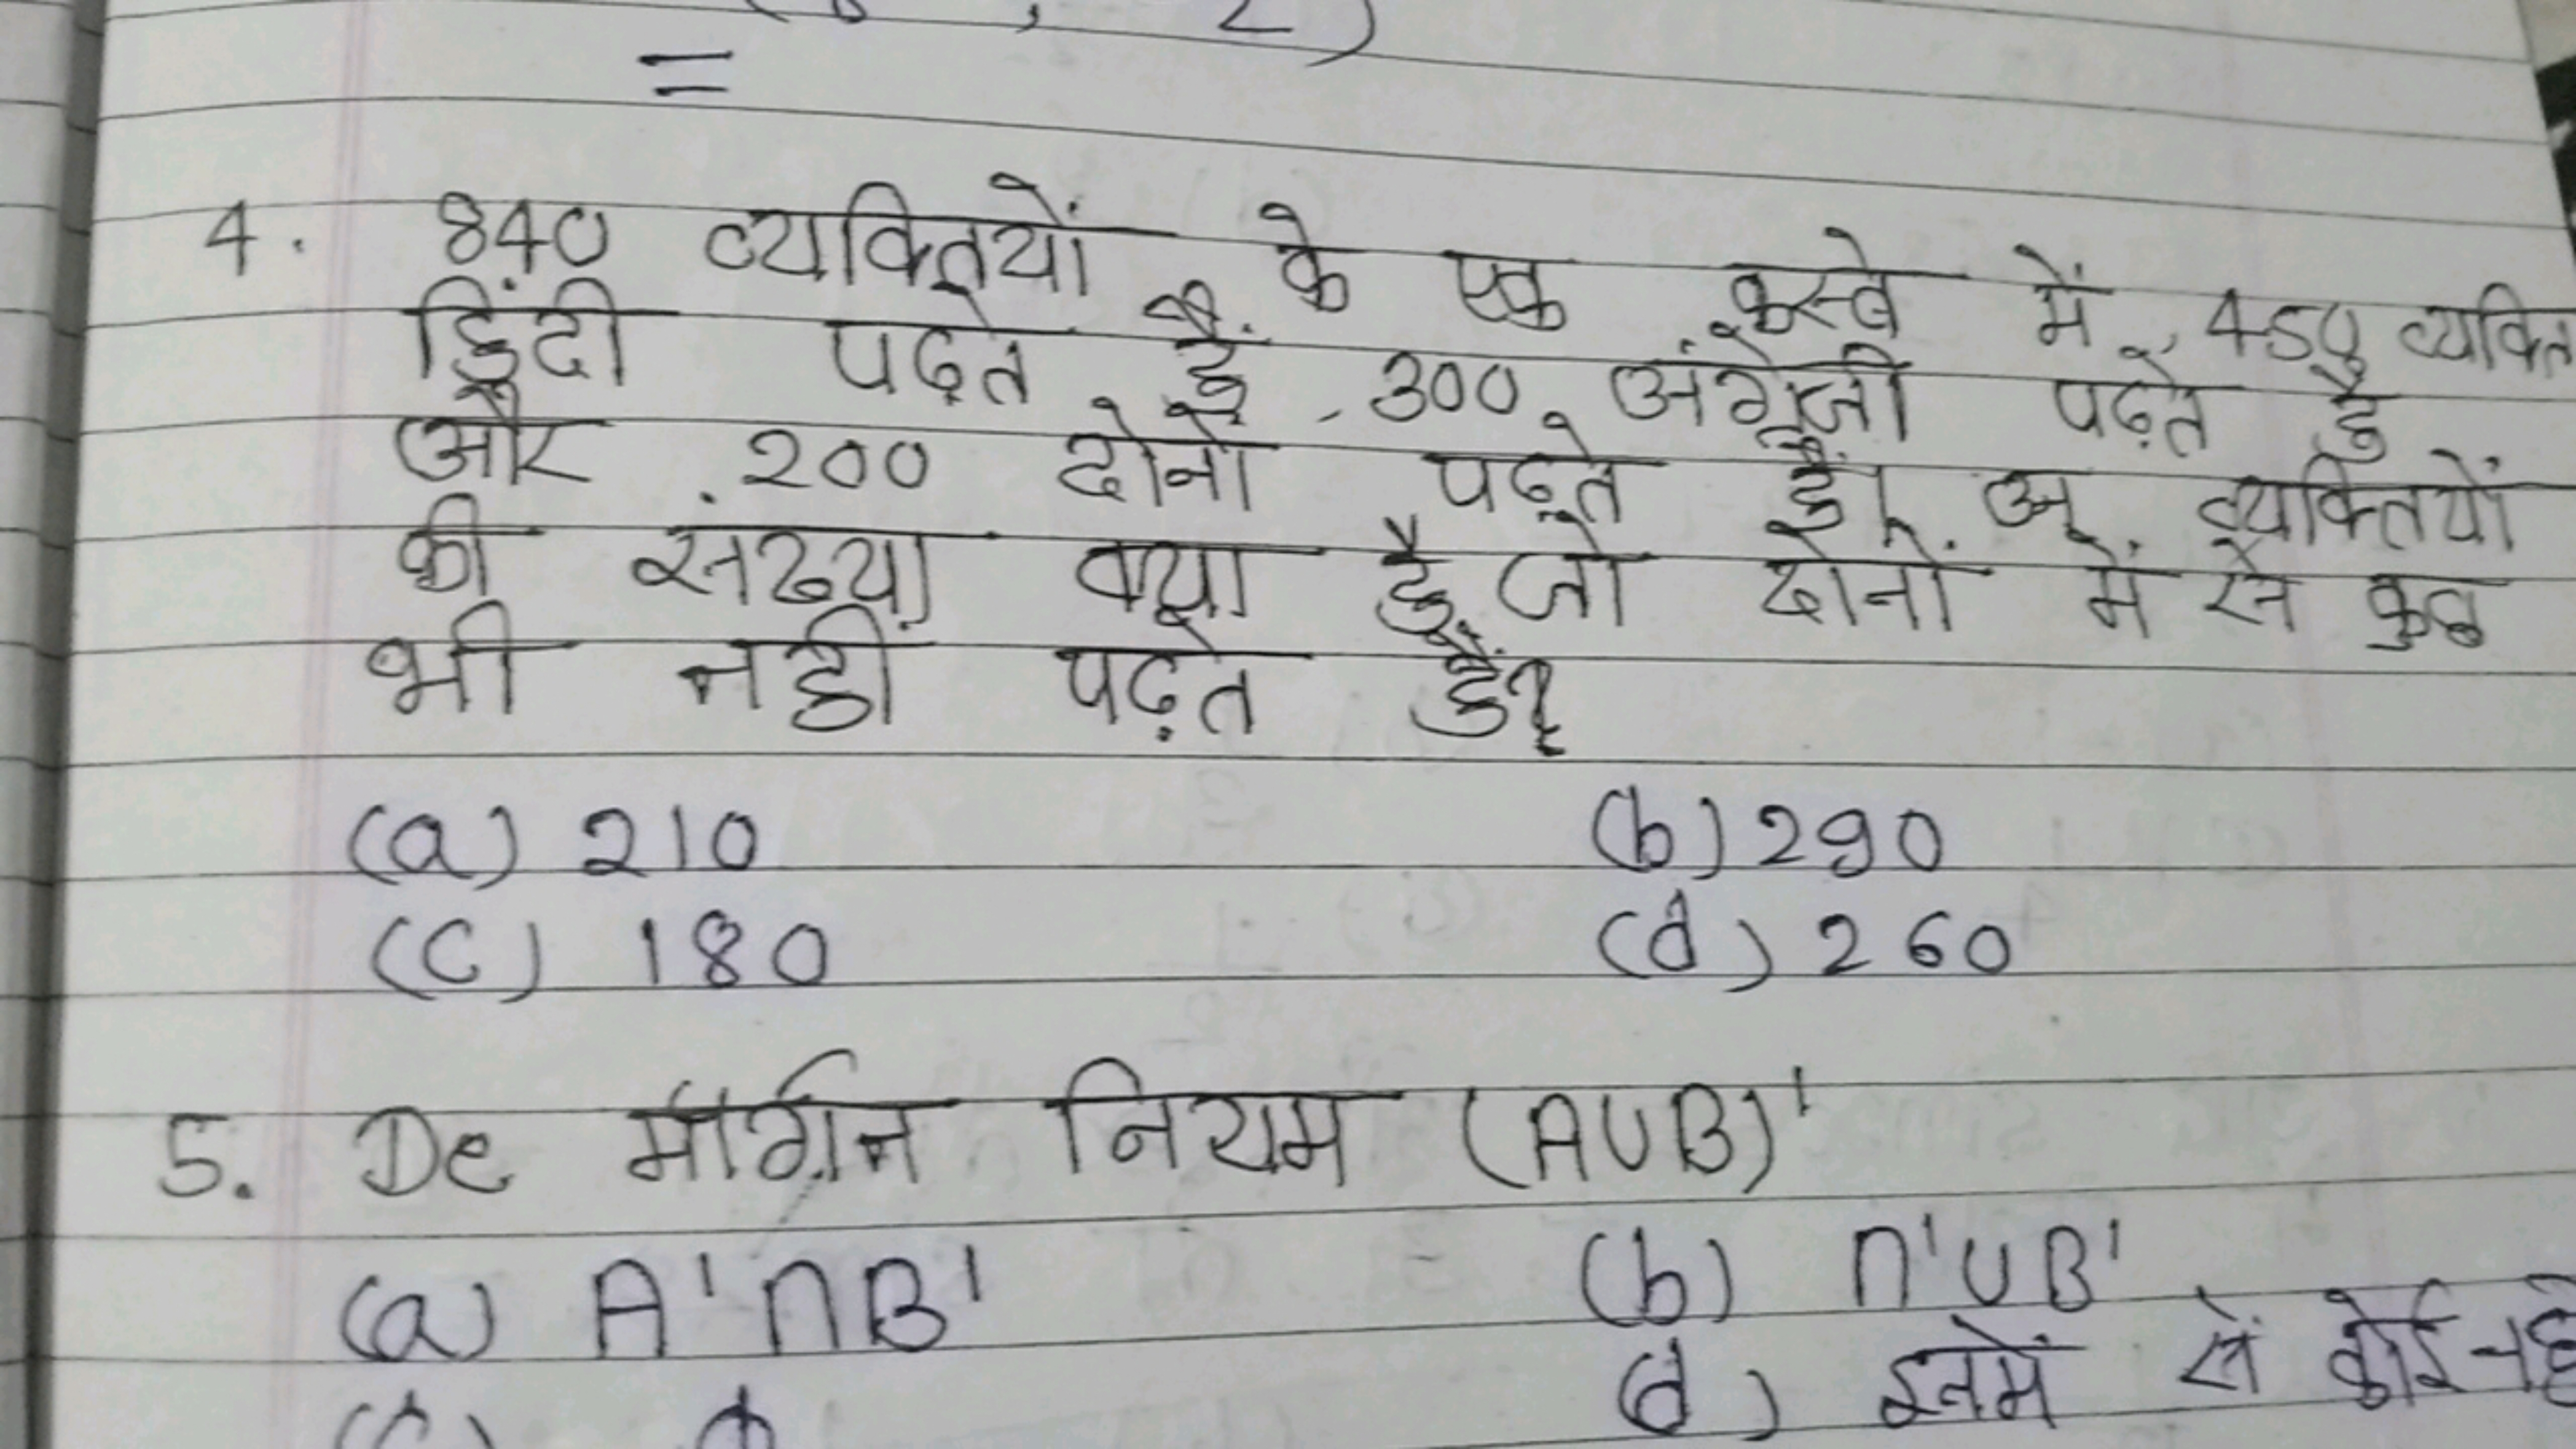 =
4. 840 व्यक्तियों के एक कस्बे में, 450 व्यक्ति
हिंदी पढ़ते हैं, 300 अंग्रेजी पढ़ते है
और 200 दोनों पढ़ते हैं। उन व्यक्तियों
की संख्या क्या है जो दोनों में से कुछ
भी नहीं पढ़ते हैं?
(a) 210 (b) 290
(c) 180 (d) 260
5. De मॉर्गन नियम (A∪B)'
(a) A'∩B' (b) ∩'∪B'
(c) ϕ (d) इनमें से कोई नही